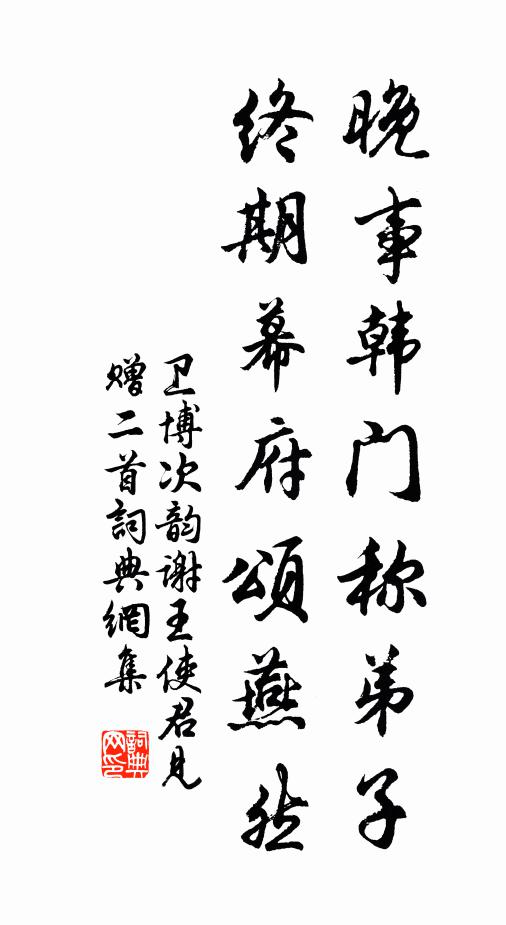 晚事韩门称弟子
终期幕府颂燕然
卫博次韵谢王使君见
赠二首詞典網集
詞典網印